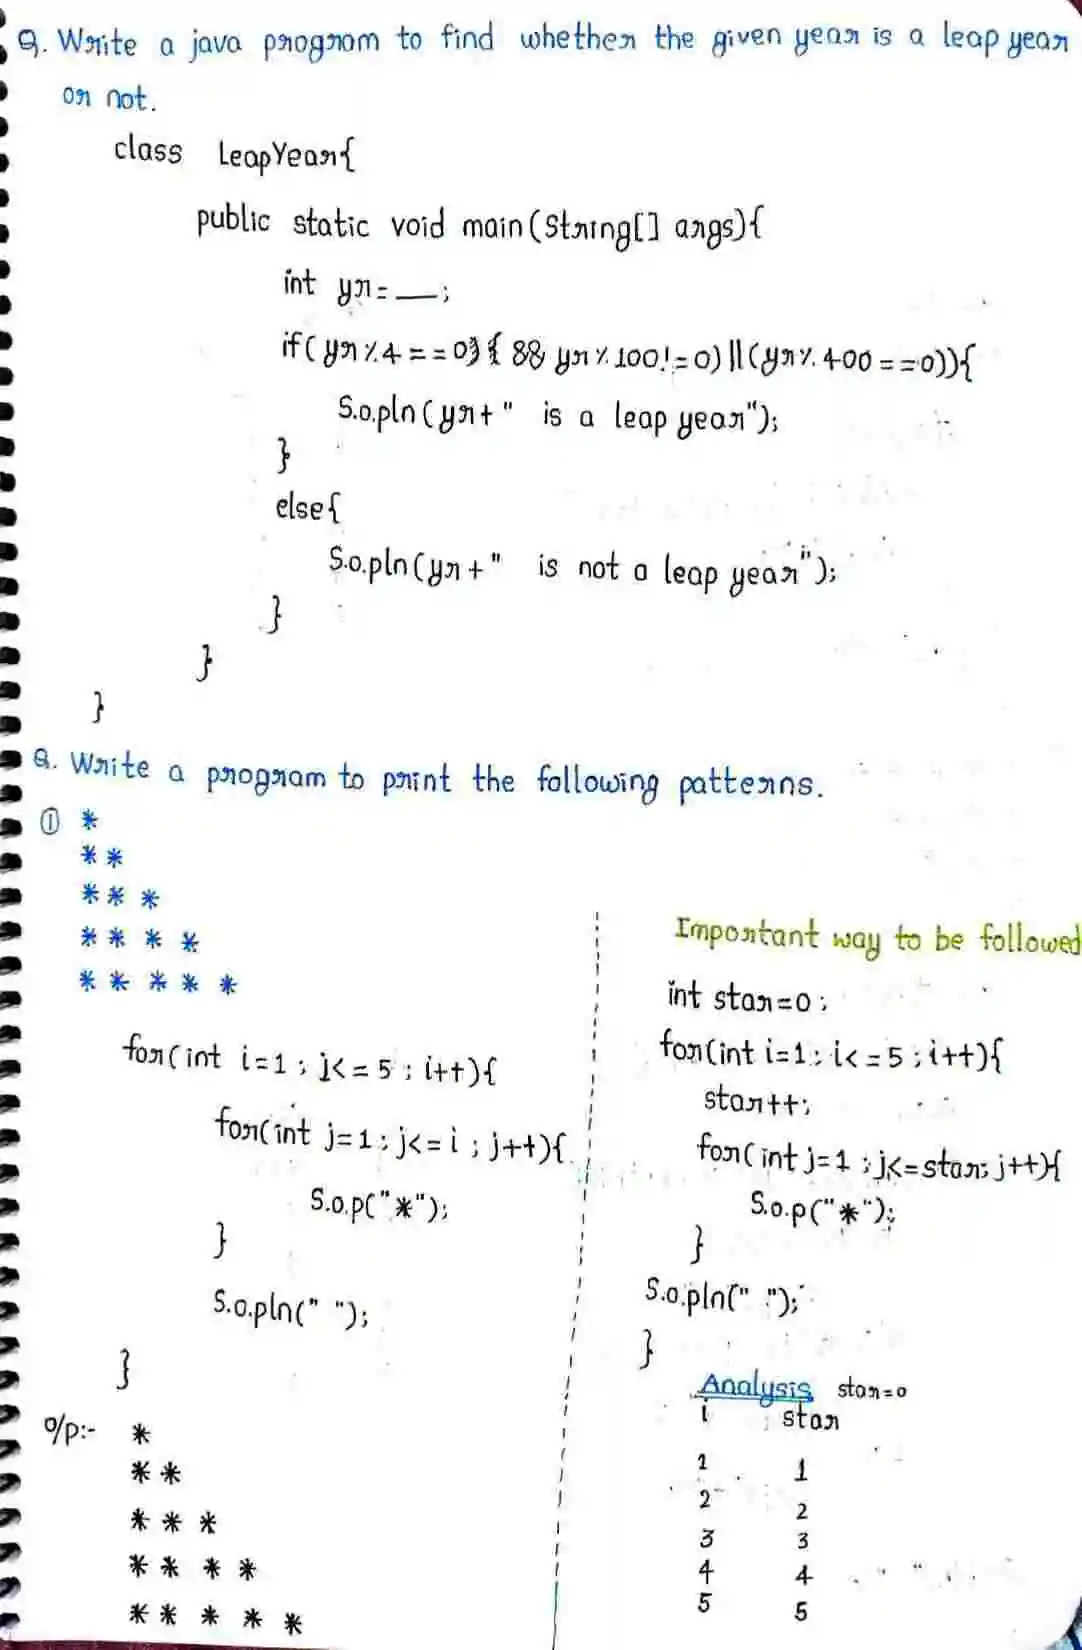 Q. Write a java program to find whether the given year is a leap year
or not.
class LeapYear{
public static void main(String[] args){
int yr=__;
if( yr%4==0 && yr%100!=0)||(yr%400==0)){
S.o.pln(yr+" is a leap year");
}
else{
S.o.pln(yr+" is not a leap year");
}
}
}
Q. Write a program to print the following patterns.
① *
* *
* * *
* * * *
* * * * *
for(int i=1; j<=5; i++){
for(int j=1; j<=i; j++){
S.o.p("*");
}
S.o.pln(" ");
}
o/p:- *
* *
* * *
* * * *
* * * * *
Important way to be followed
int star=0;
for(int i=1; i<=5; i++){
star++;
for(int j=1; j<=star; j++){
S.o.p("*");
}
S.o.pln(" ");
}
Analysis star=0
i star
1 1
2 2
3 3
4 4
5 5